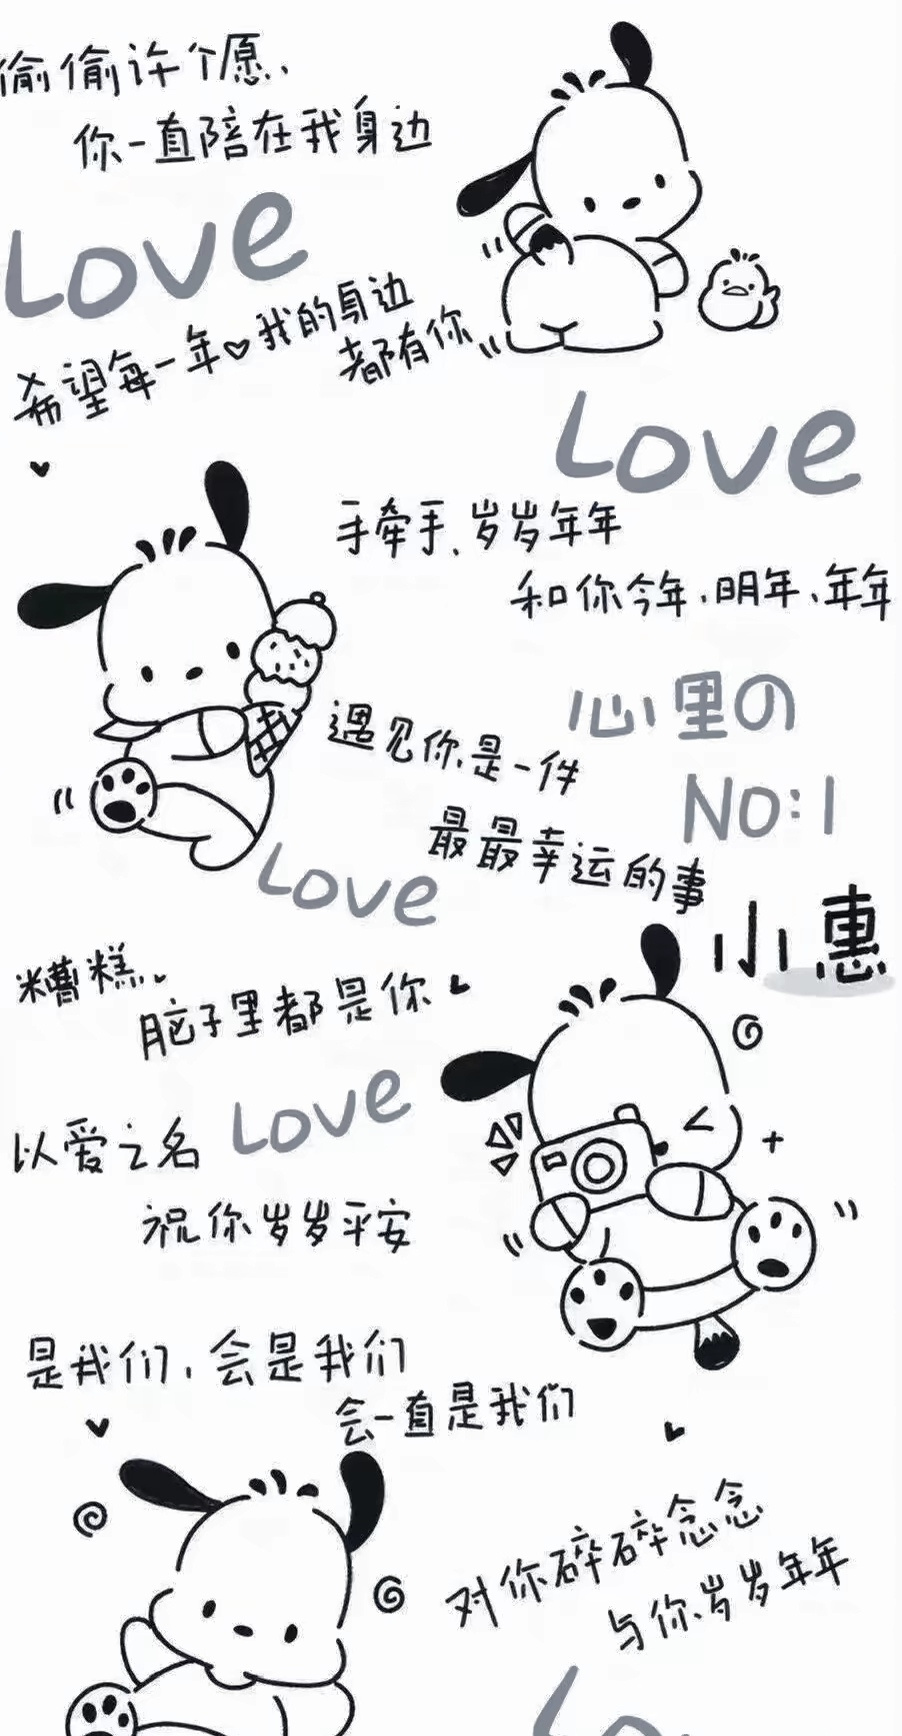 偷偷许个愿、
你一直陪在我身边
Love
希望每一年♡我的身边
都有你
Love
手牵手、岁岁年年
和你今年、明年、年年
心里の
NO:1
遇见你是一件
最最幸运的事
Love
小惠
糟糕、
脑子里都是你
Love
以爱之名
祝你岁岁平安
是我们、会是我们
会一直是我们
对你碎碎念念
与你岁岁年年
Lo